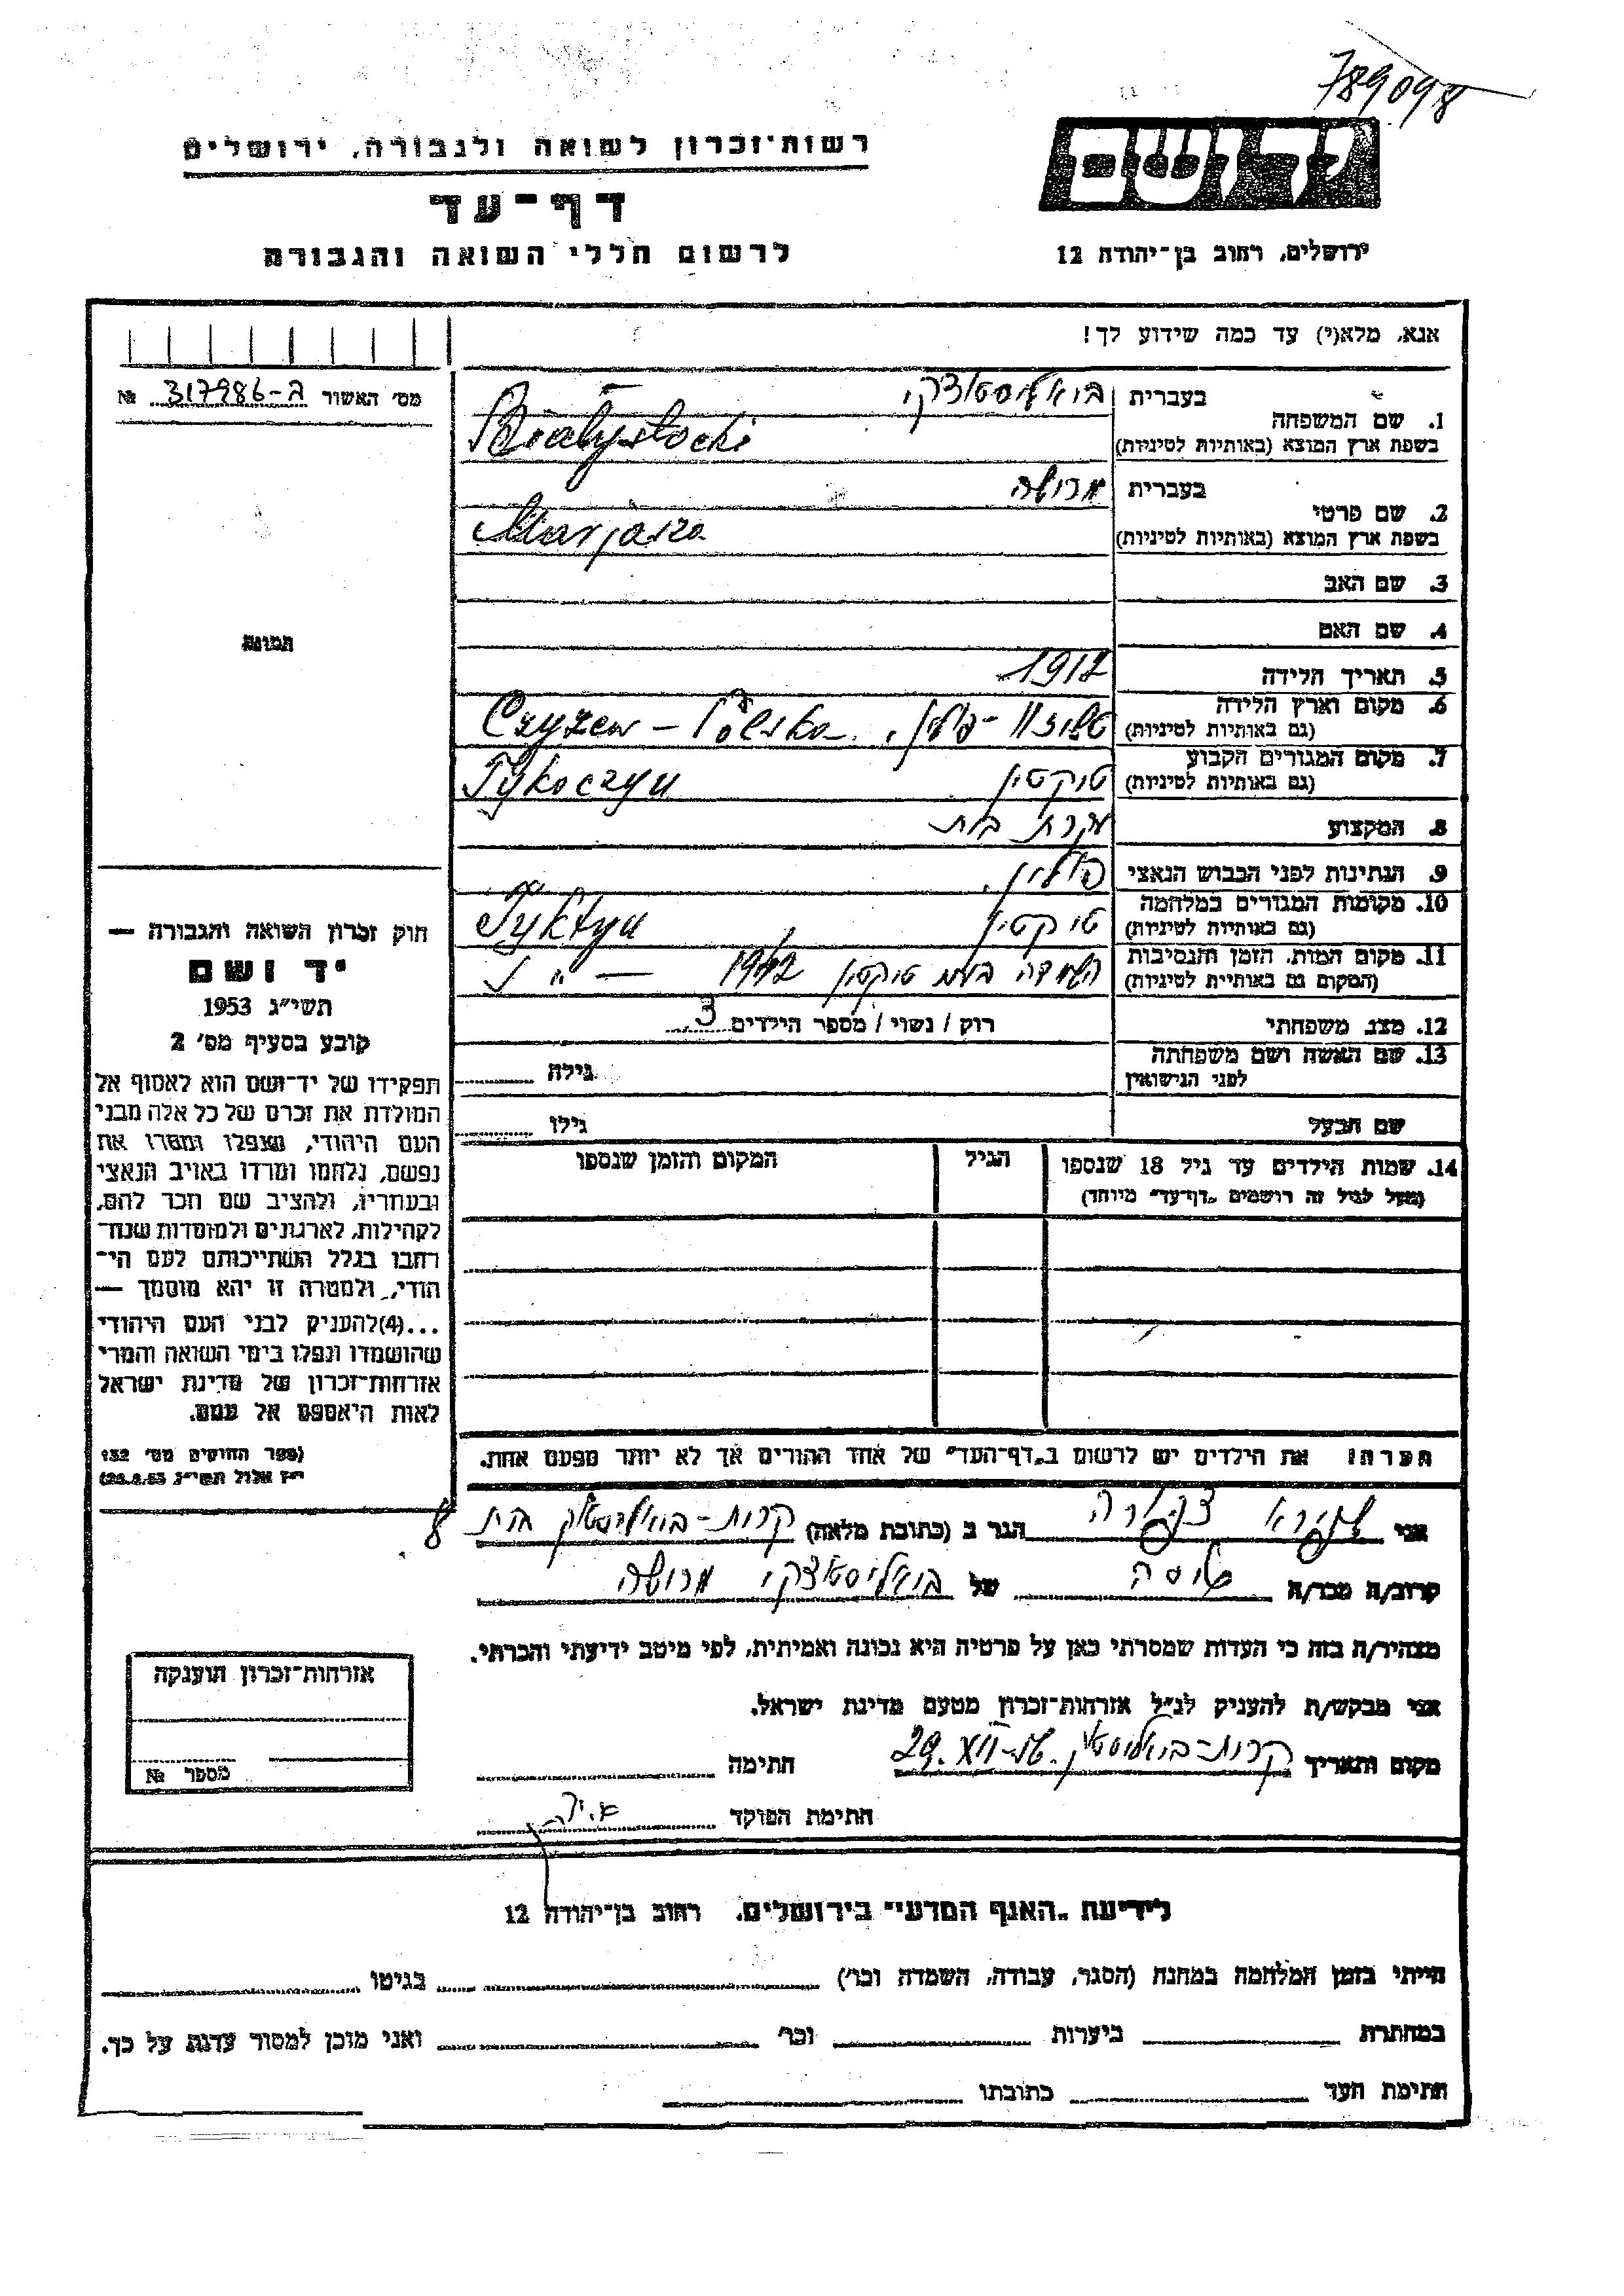 789098
רשות־זכרון לשואה ולגבורה, ירושלים
יד ושם
דף־עד
לרשום חללי השואה והגבורה
ירושלים, רחוב בן־יהודה 12
אנא, מלא(י) עד כמה שידוע לך!
מס׳ האשור 317986-ג №
1. שם המשפחה
בעברית ביאליסטוצקי
בשפת ארץ המוצא (באותיות לטיניות) Białystocki
2. שם פרטי
בעברית מרושה
בשפת ארץ המוצא (באותיות לטיניות)
3. שם האב
4. שם האם
5. תאריך הלידה 1912
6. מקום וארץ הלידה
(גם באותיות לטיניות) פולין. Czyżew - Polska
7. מקום המגורים הקבוע
(גם באותיות לטיניות) טיקטין Tykoczyn
8. המקצוע עקרת בית
9. הנתינות לפני הכבוש הנאצי פולין.
10. מקומות המגורים במלחמה
(גם באותיות לטיניות) טיקטין Tyktyn
11. מקום המות, הזמן והנסיבות
(המקום גם באותיות לטיניות) השמדה טיקטין 1942
12. מצב משפחתי רוק / נשוי / מספר הילדים 3
13. שם האשה ושם משפחתה
לפני הנישואין גילה
שם הבעל גילו
14. שמות הילדים עד גיל 18 שנספו הגיל המקום והזמן שנספו
(מעל לגיל זה רושמים „דף־עד״ מיוחד)
הערה: את הילדים יש לרשום ב„דף־העד״ של אחד ההורים אך לא יותר מפעם אחת.
תמונה
חוק זכרון השואה והגבורה —
יד ושם
תשי״ג 1953
קובע בסעיף מס׳ 2
תפקידו של יד־ושם הוא לאסוף אל
המולדת את זכרם של כל אלה מבני
העם היהודי, שנפלו ומסרו את
נפשם, נלחמו ומרדו באויב הנאצי
ובעוזריו, ולהציב שם וזכר להם,
לקהילות, לארגונים ולמוסדות שנח־
רבו בגלל השתייכותם לעם הי־
הודי, ולמטרה זו יהא מוסמך —
...(4)להעניק לבני העם היהודי
שהושמדו ונפלו בימי השואה והמרי
אזרחות־זכרון של מדינת ישראל
לאות היאספם אל עמם.
(ספר החוקים מס׳ 132
י״ז אלול תשי״ג, 28.8.53)
אני שפירא ציפורה הגר ב (כתובת מלאה) קרית-ביאליסטוק בית 8
קרוב/ה מכר/ה של ביאליסטוצקי מרושה
מצהיר/ה בזה כי העדות שמסרתי כאן על פרטיה היא נכונה ואמיתית, לפי מיטב ידיעתי והכרתי.
אני מבקש/ת להעניק לנ״ל אזרחות־זכרון מטעם מדינת ישראל.
מקום ותאריך קרית-ביאליסטוק. 29.XII חתימה
חתימת הפוקד
אזרחות־זכרון הוענקה
מספר №
לידיעת „האגף המדעי״ בירושלים, רחוב בן־יהודה 12
הייתי בזמן המלחמה במחנה (הסגר, עבודה, השמדה וכו׳) בגיטו
במחתרת ביערות וכו׳ ואני מוכן למסור עדות על כך.
חתימת העד כתובתו